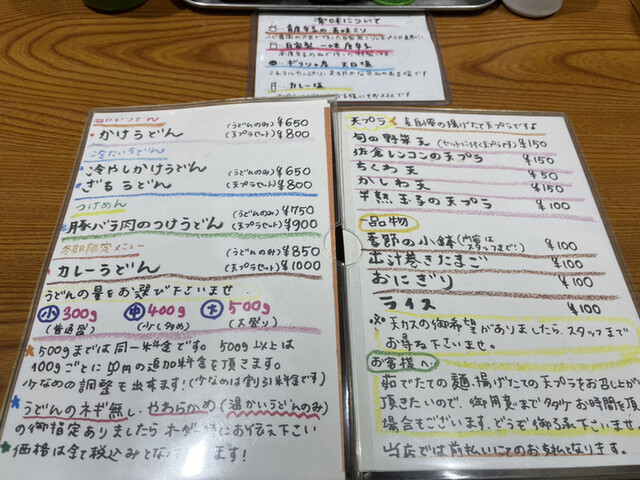 薬味について
自家製 一味唐辛子
ギリシャ産 天日塩
カレー塩
温かいうどん
かけうどん (うどんのみ) ¥650
(天プラセット) ¥800
冷たいうどん
冷やしかけうどん (うどんのみ) ¥650
ざるうどん (天プラセット) ¥800
つけめん
豚バラ肉のつけうどん (うどんのみ) ¥750
(天プラセット) ¥900
冬期限定メニュー
カレーうどん (うどんのみ) ¥850
(天プラセット) ¥1000
うどんの量をお選び下さいませ
小 300g 中 400g 大 500g
(普通盛) (少し多め) (大盛り)
500gまでは同一料金です。500g以上は
100gごとに50円の追加料金を頂きます。
少なめの調整も出来ます!(少なめは割引料金です)
うどんのネギ無し、やわらかめ(温かいうどんのみ)
の御指定ありましたらオーダー時にお伝え下さい
価格は全て税込みとなってます!
天プラ
旬の野菜天 (セットに付く天プラです) ¥150
佐倉レンコンの天プラ ¥150
ちくわ天 ¥50
かしわ天 ¥150
半熟玉子の天プラ ¥100
一品物
吉野の小鉢 (内容はスタッフまで!) ¥100
出汁巻きたまご ¥100
おにぎり ¥100
ライス ¥100
※天カスの御希望がありましたら、スタッフまで
お尋ね下さいませ。
お客様へ
茹でたての麺、揚げたての天プラをお召し上が
頂きたいので、御用意まで少々お時間を頂
場合もございます。どうぞ御了承下さいませ。
当店では前払いにてのお支払となります。